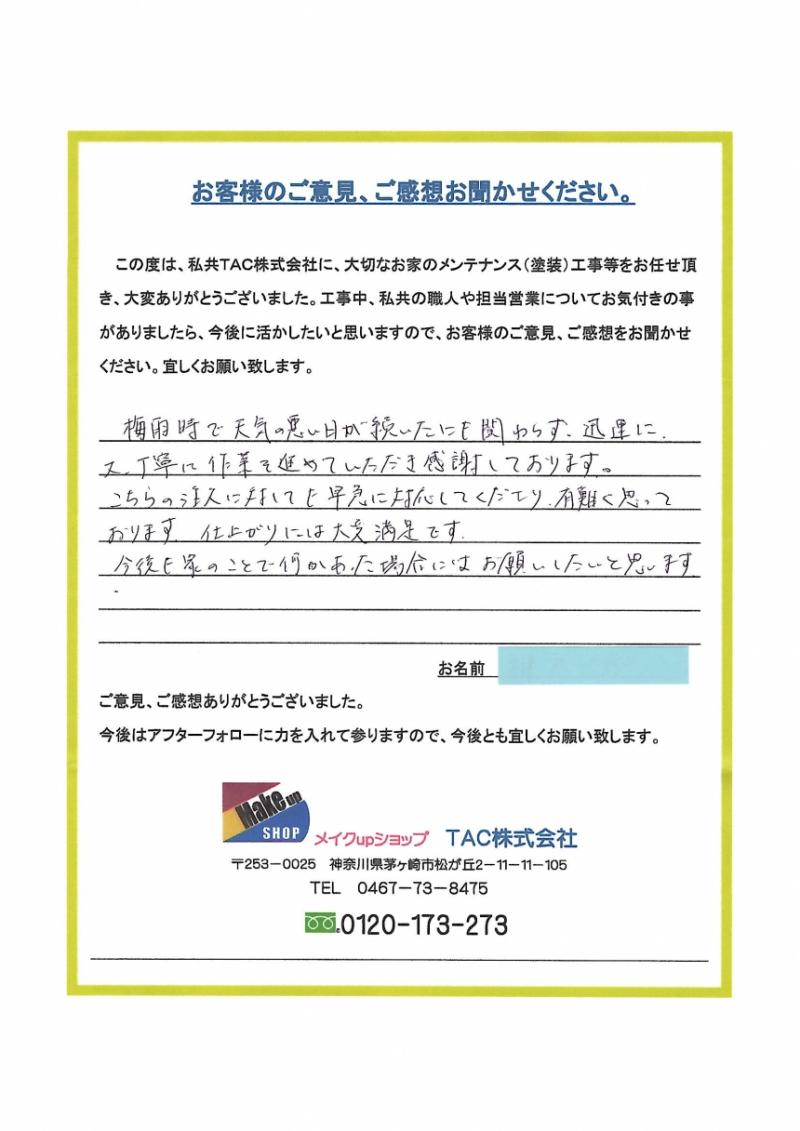 お客様のご意見、ご感想お聞かせください。
この度は、私共TAC株式会社に、大切なお家のメンテナンス（塗装）工事等をお任せ頂
き、大変ありがとうございました。工事中、私共の職人や担当営業についてお気付きの事
がありましたら、今後に活かしたいと思いますので、お客様のご意見、ご感想をお聞かせ
ください。宜しくお願い致します。
梅雨時で天気の悪い日が続いたにも関わらず、迅速に、
又、丁寧に作業を進めていただき感謝しております。
こちらの注文に対しても早急に対応してくださり、有難く思って
おります。仕上がりには大変満足です。
今後も家のことで何かあった場合にはお願いしたいと思います
.
お名前
ご意見、ご感想ありがとうございました。
今後はアフターフォローに力を入れて参りますので、今後とも宜しくお願い致します。
Make up
SHOP
メイクupショップ TAC株式会社
〒253－0025 神奈川県茅ヶ崎市松が丘2－11－11－105
TEL 0467－73－8475
0120-173-273